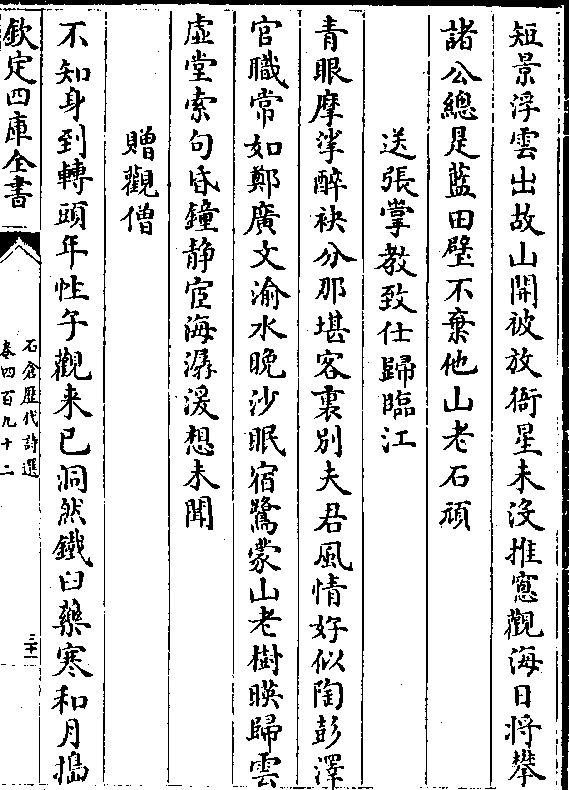 短景浮雲出故山開被放衙星未沒推窻觀海日將攀
諸公總是藍田璧不棄他山老石頑
送張掌教致仕歸臨江
青眼摩挲醉袂分那堪客裏別夫君風情好似陶彭澤
官職常如鄭廣文渝水晚沙眠宿鷺蒙山老樹暎歸雲
虛堂索句昏鐘静宦海潺湲想未聞
贈觀僧
不知身到轉頭年性子觀来已洞然鐵臼藥寒和月搗
欽定四庫全書
石倉歷代詩選
卷四百九十二
三十一